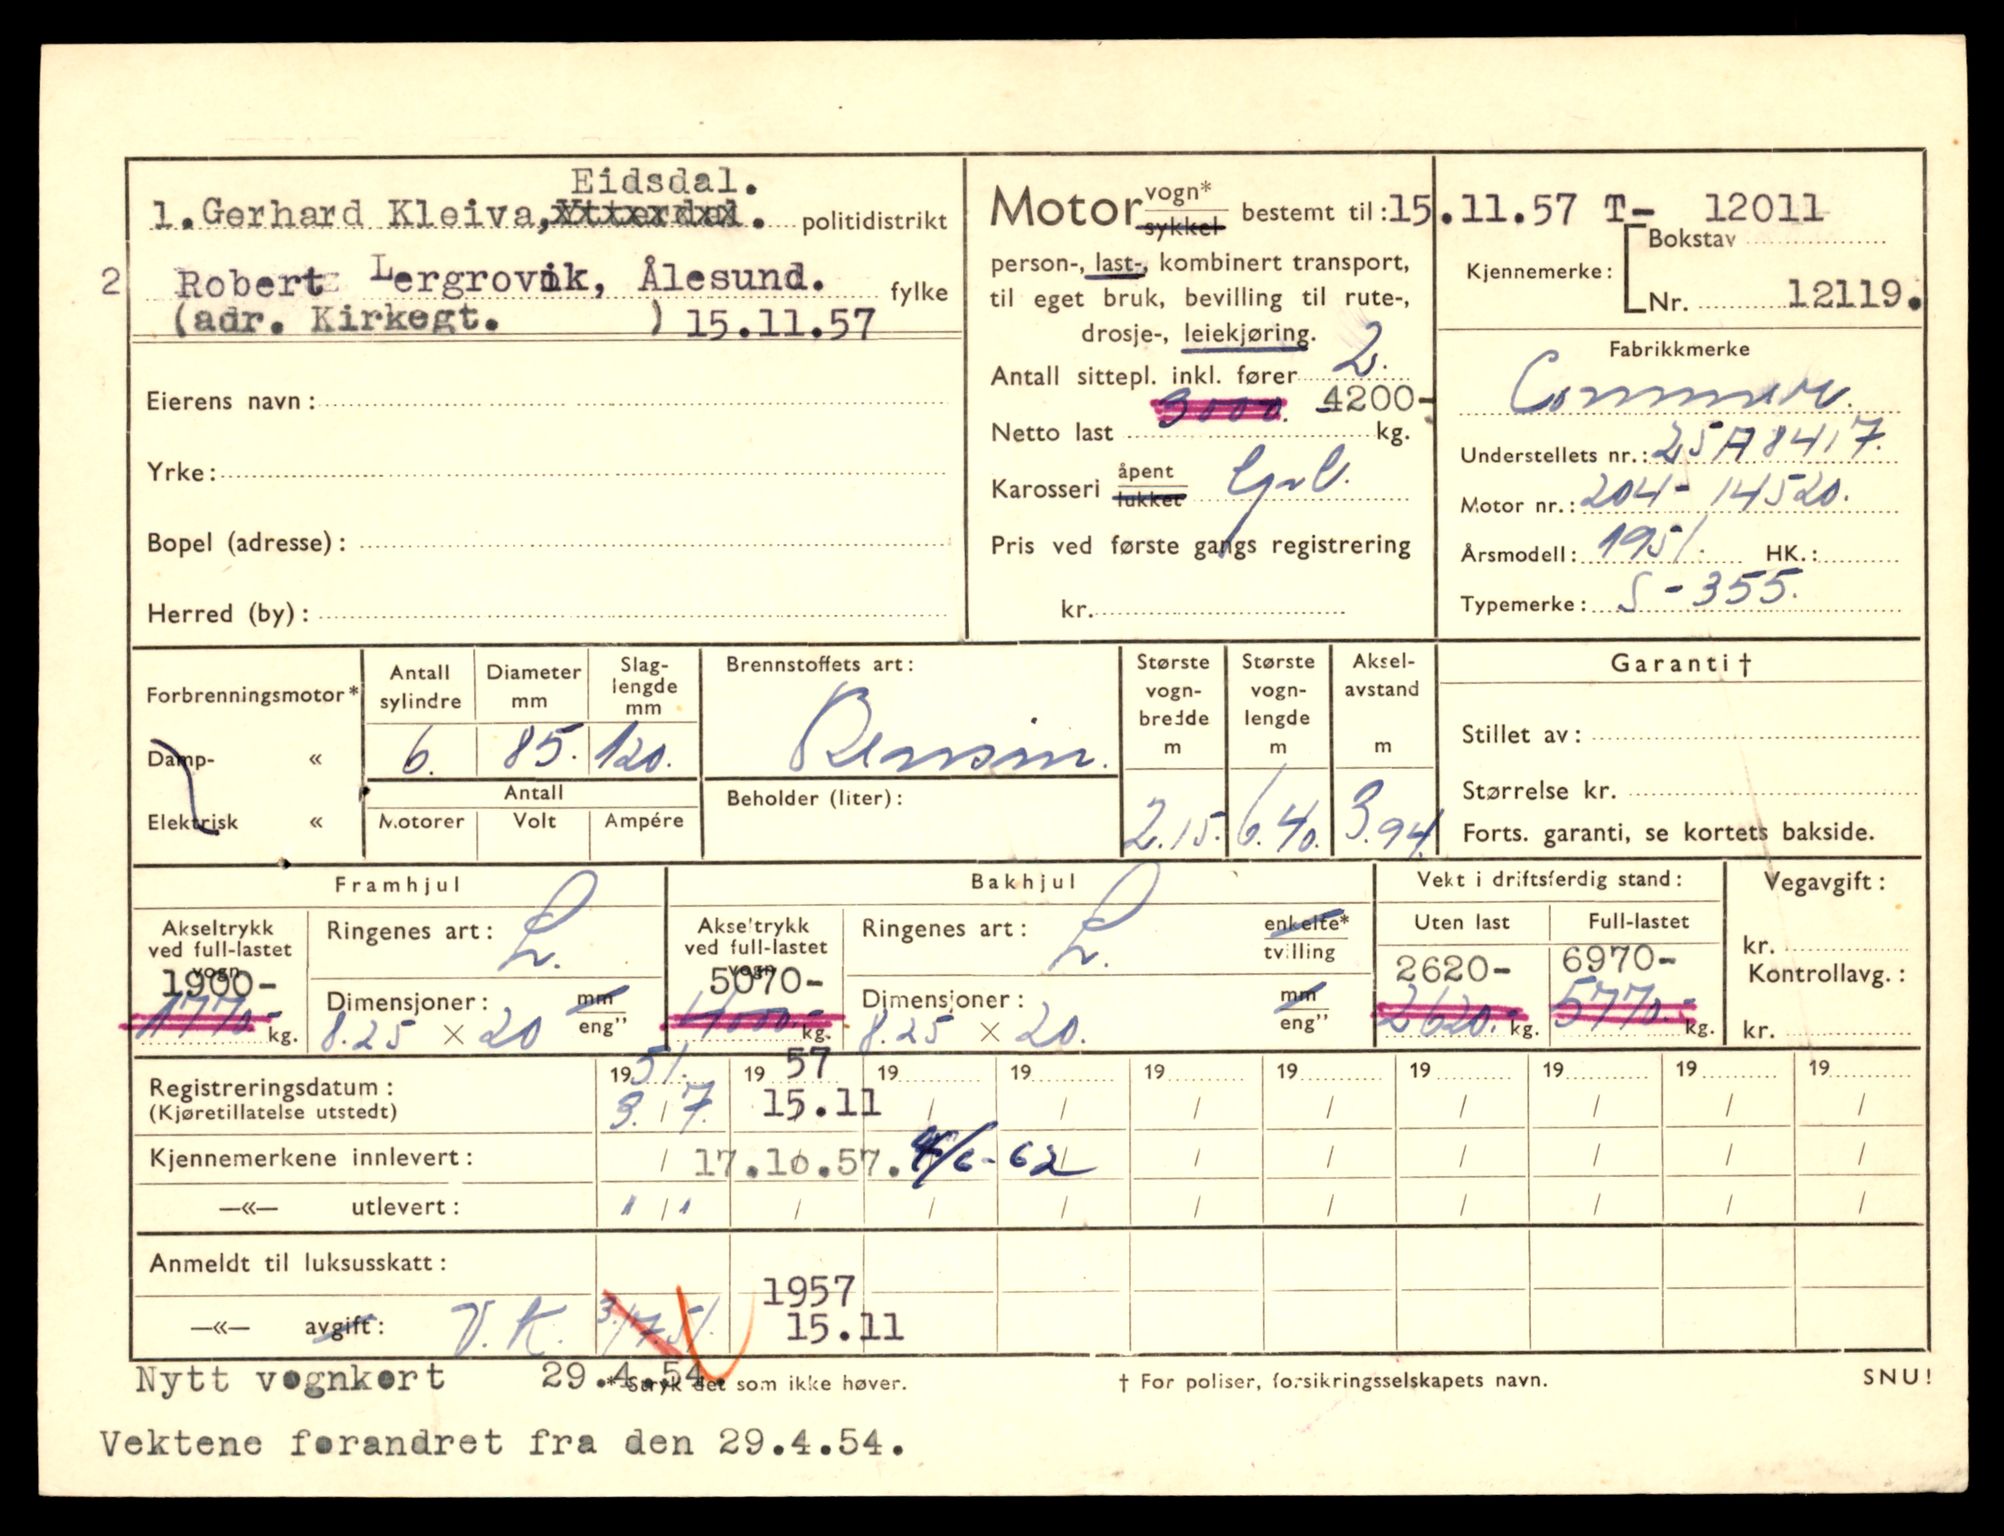 Eidsdal.
1. Gerhard Kleiva, Ytterdal. politidistrikt
2 Robert Lergrovik, Ålesund. fylke
(adr. Kirkegt. ) 15.11.57
Eierens navn:
Yrke:
Bopel (adresse):
Herred (by):
Motor vogn* sykkel bestemt til: 15.11.57
person-, last-, kombinert transport,
til eget bruk, bevilling til rute-,
drosje-, leiekjøring.
Antall sittepl. inkl. fører 2.
3000. 4200-
Netto last kg.
Karosseri åpent lukket
Pris ved første gangs registrering
kr.
T- 12011
Kjennemerke: Bokstav
Nr. 12119.
Fabrikkmerke
Commer.
Understellets nr.: 25A8417.
Motor nr.: 204-14520.
Årsmodell: 1951. HK.:
Typemerke: S-355.
Forbrenningsmotor*
Damp- «
Elektrisk «
Antall sylindre
6.
Diameter mm
85.
Slag-lengde mm
120.
Antall
Motorer Volt Ampére
Brennstoffets art:
Bensin.
Beholder (liter):
Største vogn-bredde m
2.15.
Største vogn-lengde m
6.40.
Aksel-avstand m
3.94.
Garanti†
Stillet av:
Størrelse kr.
Forts. garanti, se kortets bakside.
Framhjul
Akseltrykk ved full-lastet vogn
1900-
1770.- kg.
Ringenes art: L.
Dimensjoner: mm eng”
8.25 × 20
Bakhjul
Akseltrykk ved full-lastet vogn
5070-
4000.- kg.
Ringenes art: L. enkelte* tvilling
Dimensjoner: mm eng”
8.25 × 20.
Vekt i driftsferdig stand:
Uten last Full-lastet
2620- 6970-
2620.- kg. 5770.- kg.
Vegavgift:
kr.
Kontrollavg.:
kr.
Registreringsdatum: 1951. 19 57 19 19 19 19 19 19 19 19
(Kjøretillatelse utstedt) 3. / 7. 15.11 / / / / / / / /
Kjennemerkene innlevert: / 17.10.57. 4/6-62 / / / / / /
—«— utlevert: " / " / / / / / / / / /
Anmeldt til luksusskatt:
1957
—«— avgift: V.K. 3/7.51. 15.11
Nytt vognkort 29.4.54.
* Stryk det som ikke høver. † For poliser, forsikringsselskapets navn. SNU!
Vektene forandret fra den 29.4.54.